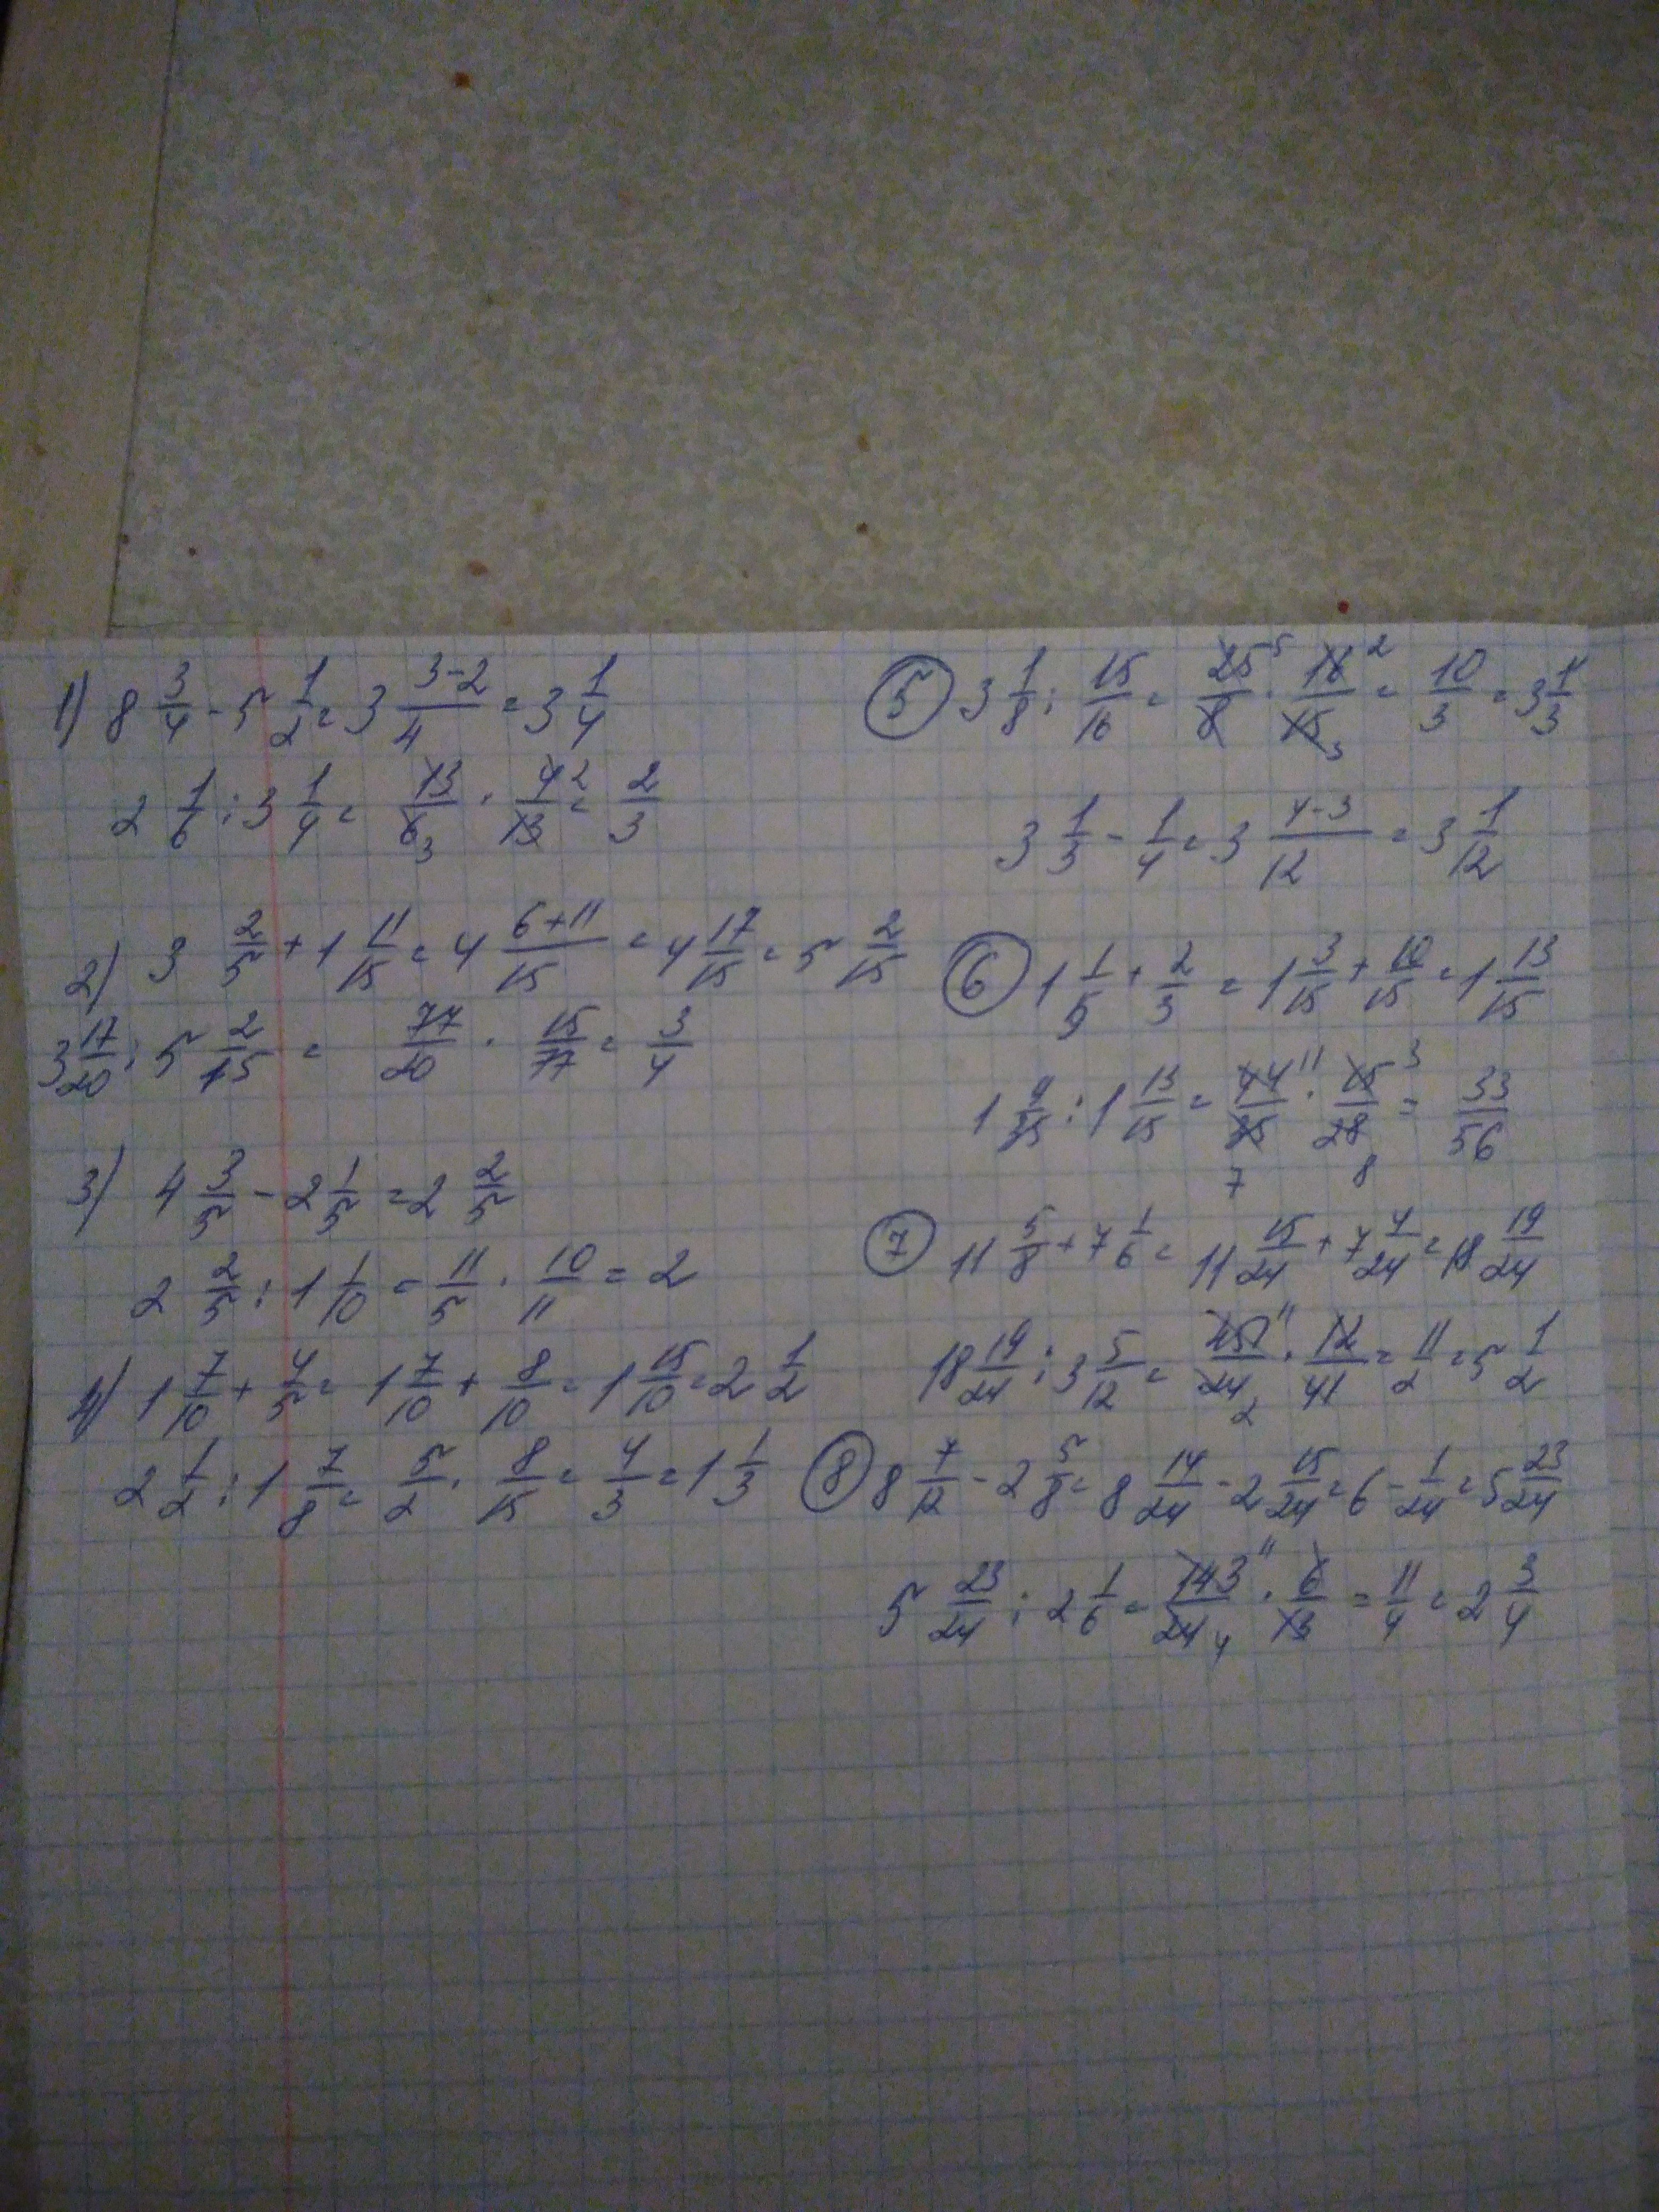 1) 8 3/4 - 5 1/2 = 3 (3-2)/4 = 3 1/4
2 1/6 : 3 1/4 = 13/6 3 · 4 2/13 = 2/3
2) 3 2/5 + 1 11/15 = 4 (6+11)/15 = 4 17/15 = 5 2/15
3 17/20 : 5 2/15 = 77/20 · 15/77 = 3/4
3) 4 3/5 - 2 1/5 = 2 2/5
2 2/5 : 1 1/10 = 11/5 · 10/11 = 2
4) 1 7/10 + 4/5 = 1 7/10 + 8/10 = 1 15/10 = 2 1/2
2 1/2 : 1 7/8 = 5/2 · 8/15 = 4/3 = 1 1/3
5 3 1/8 : 15/16 = 25 5/8 · 16 2/15 3 = 10/3 = 3 1/3
3 1/3 - 1/4 = 3 (4-3)/12 = 3 1/12
6 1 1/5 + 2/3 = 1 3/15 + 10/15 = 1 13/15
1 9/35 : 1 13/15 = 44 11/35 7 · 15 3/28 8 = 33/56
7 11 5/8 + 7 1/6 = 11 15/24 + 7 4/24 = 18 19/24
18 19/24 : 3 5/12 = 451 11/24 2 · 12/41 = 11/2 = 5 1/2
8 8 7/12 - 2 5/8 = 8 14/24 - 2 15/24 = 6 - 1/24 = 5 23/24
5 23/24 : 2 1/6 = 143 11/24 4 · 6/13 = 11/4 = 2 3/4